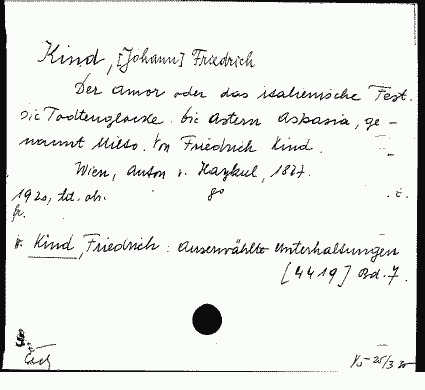 Kind, [Johann] Friedrich
Der Amor oder das italienische Fest.
die Todtenglocke. die Astern Aspasia, ge-
nannt Milto. Von Friedrich Kind.
Wien, Anton v. Haykul, 1827.
1920, tit. ob. 80
fr.
Kind, Friedrich: Auserwählte Unterhaltungen
[4419] Bd. 7.
25/3